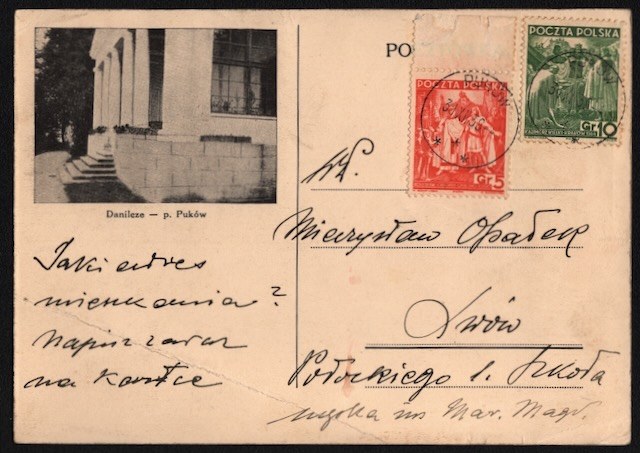 PO
POCZTA POLSKA
POCZTA POLSKA
Gr 5
Gr 10
PUKÓW
Danilcze — p. Puków
Jaki adres
mieszkania?
Napisz zaraz
na kartce
W.P.
Mieczysław Opałek
Lwów
Potockiego 1. Szkoła
męska im Mar. Magd.